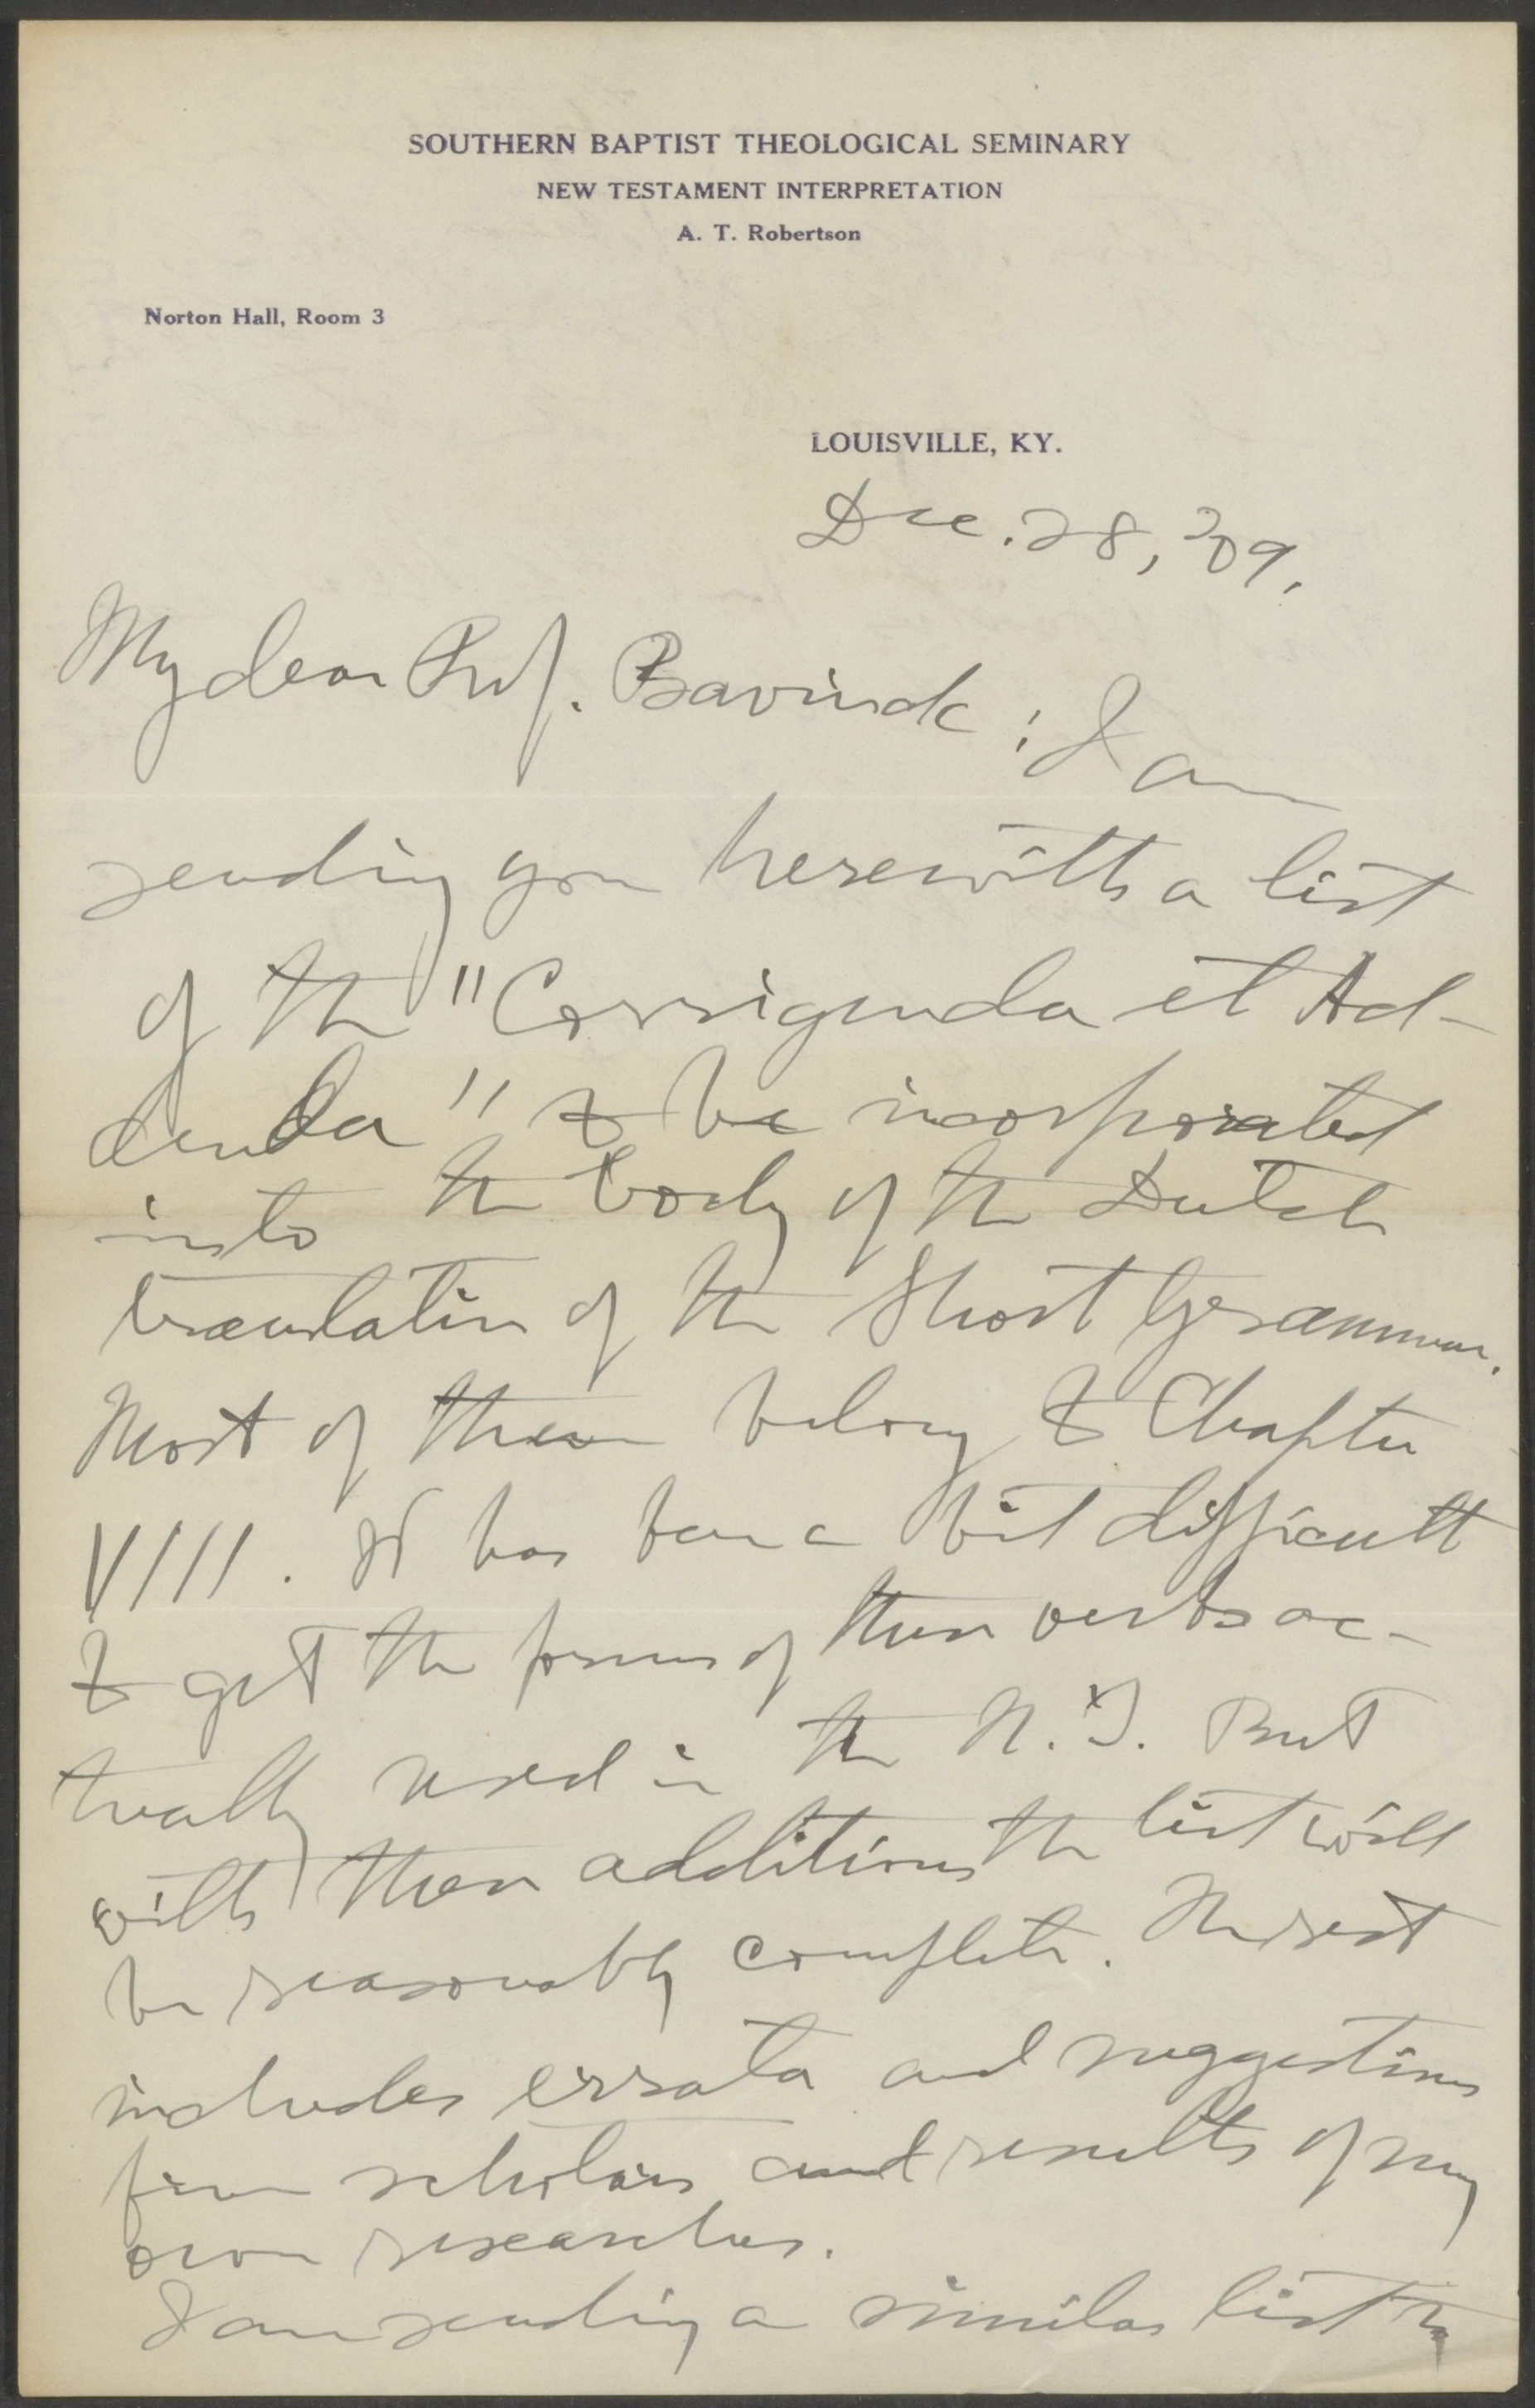 SOUTHERN BAPTIST THEOLOGICAL SEMINARY
NEW TESTAMENT INTERPRETATION
A. T. Robertson
Norton Hall, Room 3
LOUISVILLE, KY.
Dec. 28, '09.
My dear Prof. Bavinck: I am
sending you herewith a list
of the "Corrigenda et Ad-
denda" to be incorporated
into the body of the Dutch
translation of the Short Grammar.
Most of them belong to Chapter
VIII. It has been a bit difficult
to get the forms of these verbs ac-
tually used in the N.T. But
with these additions the list will
be reasonably complete. The rest
includes errata and suggestions
from scholars and results of my
own researches.
I am sending a similar list to